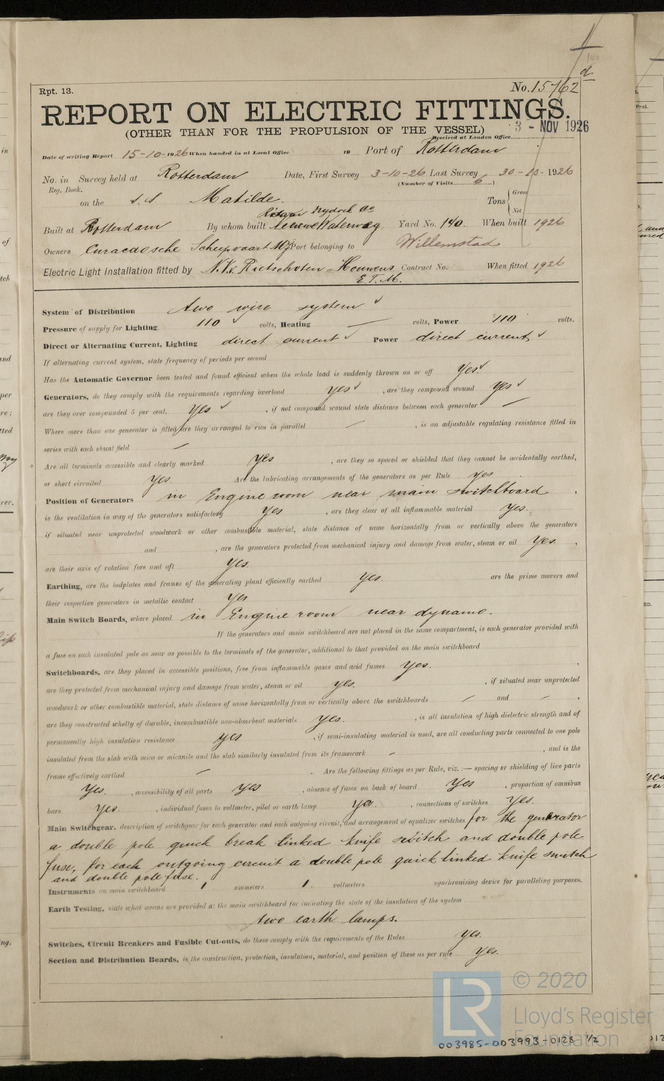 Rpt. 13.
No. 15762
REPORT ON ELECTRIC FITTINGS.
(OTHER THAN FOR THE PROPULSION OF THE VESSEL)
Received at London Office
3 - NOV 1926
Date of writing Report 15-10-1926 When handed in at Local Office 19 Port of Rotterdam
No. in Survey held at Rotterdam Date, First Survey 3-10-26 Last Survey 30-10-1926
Reg. Book. (Number of Visits 6)
on the s.s Matilde. Tons { Gross
Net
Built at Rotterdam By whom built Nieuwe Waterweg Yard No. 140. When built 1926
Owners Curacaosche Scheepvaart Mij Port belonging to Willemstad
Electric Light Installation fitted by N.V. Rietschoten & Houwens Contract No. When fitted 1926
E.T.M.
System of Distribution Two wire system
Pressure of supply for Lighting 110 volts, Heating — volts, Power 110 volts.
Direct or Alternating Current, Lighting direct current Power direct current
If alternating current system, state frequency of periods per second
Has the Automatic Governor been tested and found efficient when the whole load is suddenly thrown on or off Yes
Generators, do they comply with the requirements regarding overload yes, are they compound wound yes
are they over compounded 5 per cent. yes, if not compound wound state distance between each generator —
Where more than one generator is fitted are they arranged to run in parallel —, is an adjustable regulating resistance fitted in
series with each shunt field —
Are all terminals accessible and clearly marked yes, are they so spaced or shielded that they cannot be accidentally earthed,
or short circuited yes. Are the lubricating arrangements of the generators as per Rule yes.
Position of Generators in Engine room near main switchboard
is the ventilation in way of the generators satisfactory yes, are they clear of all inflammable material yes.
if situated near unprotected woodwork or other combustible material, state distance of same horizontally from or vertically above the generators
and , are the generators protected from mechanical injury and damage from water, steam or oil yes.
are their axis of rotation fore and aft yes.
Earthing, are the bedplates and frames of the generating plant efficiently earthed yes. are the prime movers and
their respective generators in metallic contact yes
Main Switch Boards, where placed in Engine room near dynamo.
If the generators and main switchboard are not placed in the same compartment, is each generator provided with
a fuse on each insulated pole as near as possible to the terminals of the generator, additional to that provided on the main switchboard
Switchboards, are they placed in accessible positions, free from inflammable gases and acid fumes yes.
are they protected from mechanical injury and damage from water, steam or oil yes., if situated near unprotected
woodwork or other combustible material, state distance of same horizontally from or vertically above the switchboards — and —
are they constructed wholly of durable, incombustible non-absorbent materials yes., is all insulation of high dielectric strength and of
permanently high insulation resistance yes, if semi-insulating material is used, are all conducting parts connected to one pole
insulated from the slab with mica or micanite and the slab similarly insulated from its framework —, and is the
frame effectively earthed —. Are the following fittings as per Rule, viz.:— spacing or shielding of live parts
yes., accessibility of all parts yes, absence of fuses on back of board yes, proportion of omnibus
bars yes., individual fuses to voltmeter, pilot or earth lamp yes., connections of switches yes.
Main Switchgear, description of switchgear for each generator and each outgoing circuit, and arrangement of equalizer switches for the generator
a double pole quick break linked knife switch and double pole
fuse, for each outgoing circuit a double pole quick linked knife switch
and double pole fuse.
Instruments on main switchboard 1 ammeters 1. voltmeters synchronising device for paralleling purposes.
Earth Testing, state what means are provided at the main switchboard for indicating the state of the insulation of the system
two earth lamps.
Switches, Circuit Breakers and Fusible Cut-outs, do these comply with the requirements of the Rules yes.
Section and Distribution Boards, is the construction, protection, insulation, material, and position of these as per rule yes.
LR
© 2020
Lloyd's Register
Foundation
003985-003993-0128 1/2